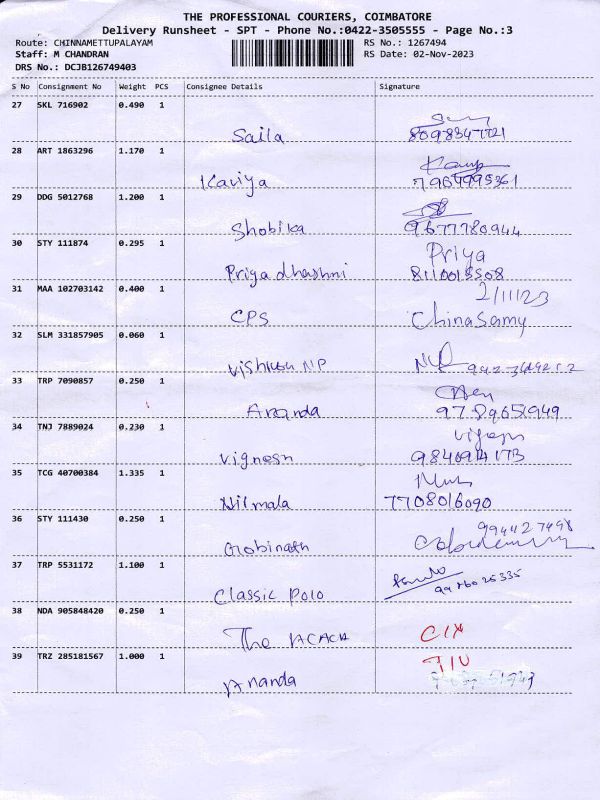 THE PROFESSIONAL COURIERS, COIMBATORE
Delivery Runsheet - SPT - Phone No.:0422-3505555 - Page No.:3
Route: CHINNAMETTUPALAYAM RS No.: 1267494
Staff: M CHANDRAN RS Date: 02-Nov-2023
DRS No.: DCJB126749403
S No Consignment No Weight PCS Consignee Details Signature
27 SKL 716902 0.490 1
Saila
28 ART 1863296 1.170 1
Kaviya
29 DDG 5012768 1.200 1
Shobika 9677780944
30 STY 111874 0.295 1 Priya
Priyadhashni 8110015508
31 MAA 102703142 0.400 1 2/11/23
CPS Chinasamy
32 SLM 331857905 0.060 1
NP
33 TRP 7090857 0.250 1
Ananda 9789651949
34 TNJ 7889024 0.230 1
Vignesh
35 TCG 40700384 1.335 1
Nilmala 7708016090
36 STY 111430 0.250 1 994427498
Gobinath
37 TRP 5531172 1.100 1
Classic Polo 9976025335
38 NDA 905848420 0.250 1
The
39 TRZ 285181567 1.000 1
Ananda